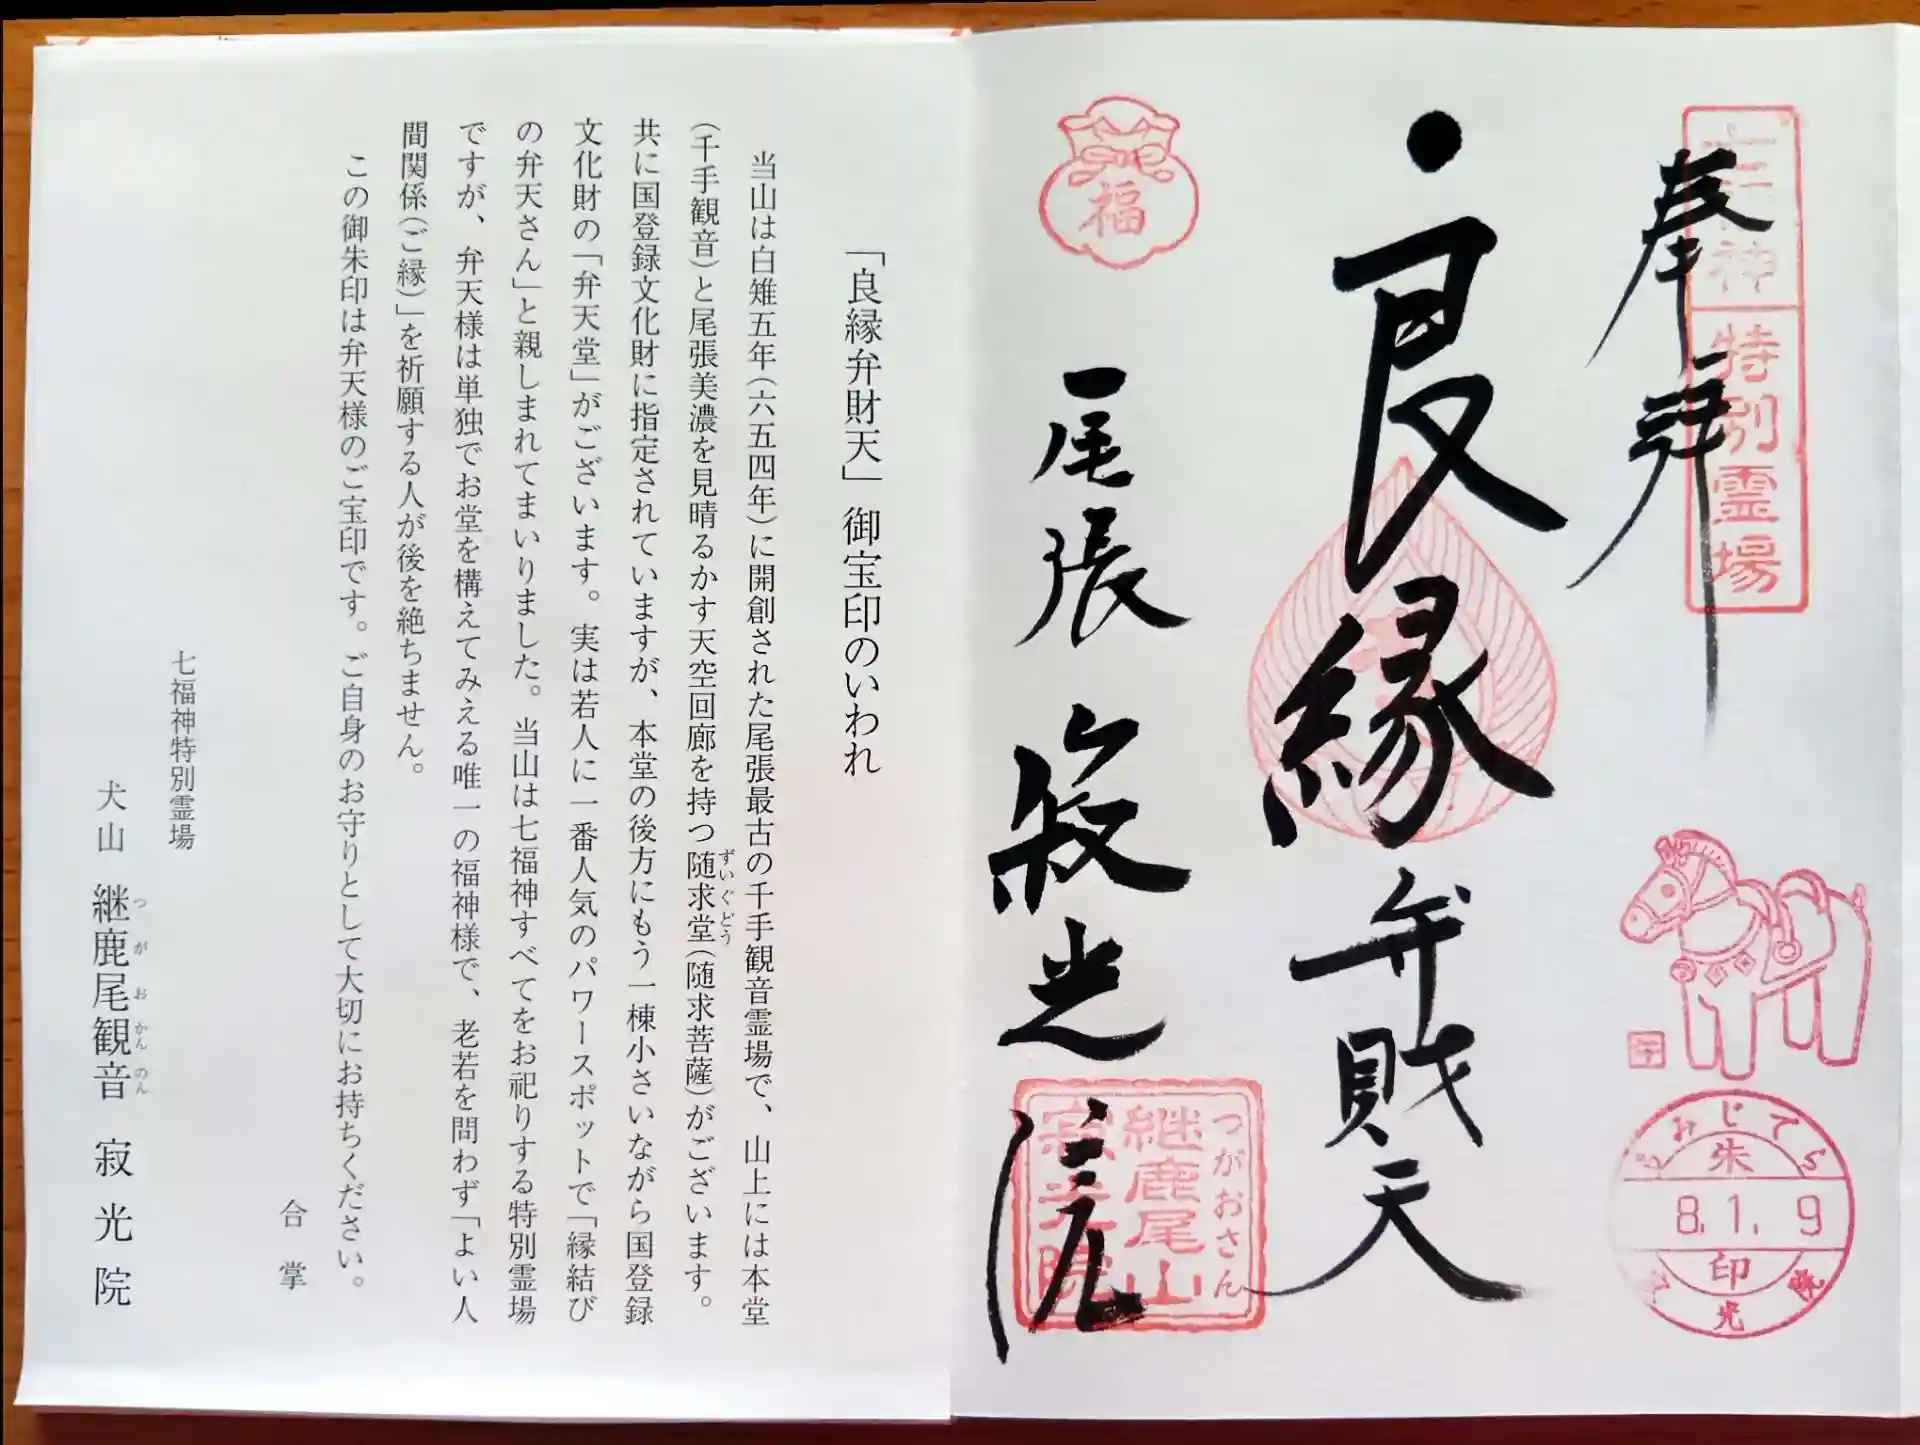 奉拝
七福神
特別霊場
良縁
弁財天
尾張
寂光院
福
つがおさん
継鹿尾山
寂光院
もみじでら
朱
8.1.9
印
寂光院
「良縁弁財天」御宝印のいわれ
当山は白雉五年(六五四年)に開創された尾張最古の千手観音霊場で、山上には本堂
(千手観音)と尾張美濃を見晴るかす天空回廊を持つ随求堂(随求菩薩)がございます。
ずいぐどう
共に国登録文化財に指定されていますが、本堂の後方にもう一棟小さいながら国登録
文化財の「弁天堂」がございます。実は若人に一番人気のパワースポットで「縁結び
の弁天さん」と親しまれてまいりました。当山は七福神すべてをお祀りする特別霊場
ですが、弁天様は単独でお堂を構えてみえる唯一の福神様で、老若を問わず「よい人
間関係(ご縁)」を祈願する人が後を絶ちません。
この御朱印は弁天様のご宝印です。ご自身のお守りとして大切にお持ちください。
合掌
七福神特別霊場
犬山 継鹿尾観音 寂光院
つがおかんのん